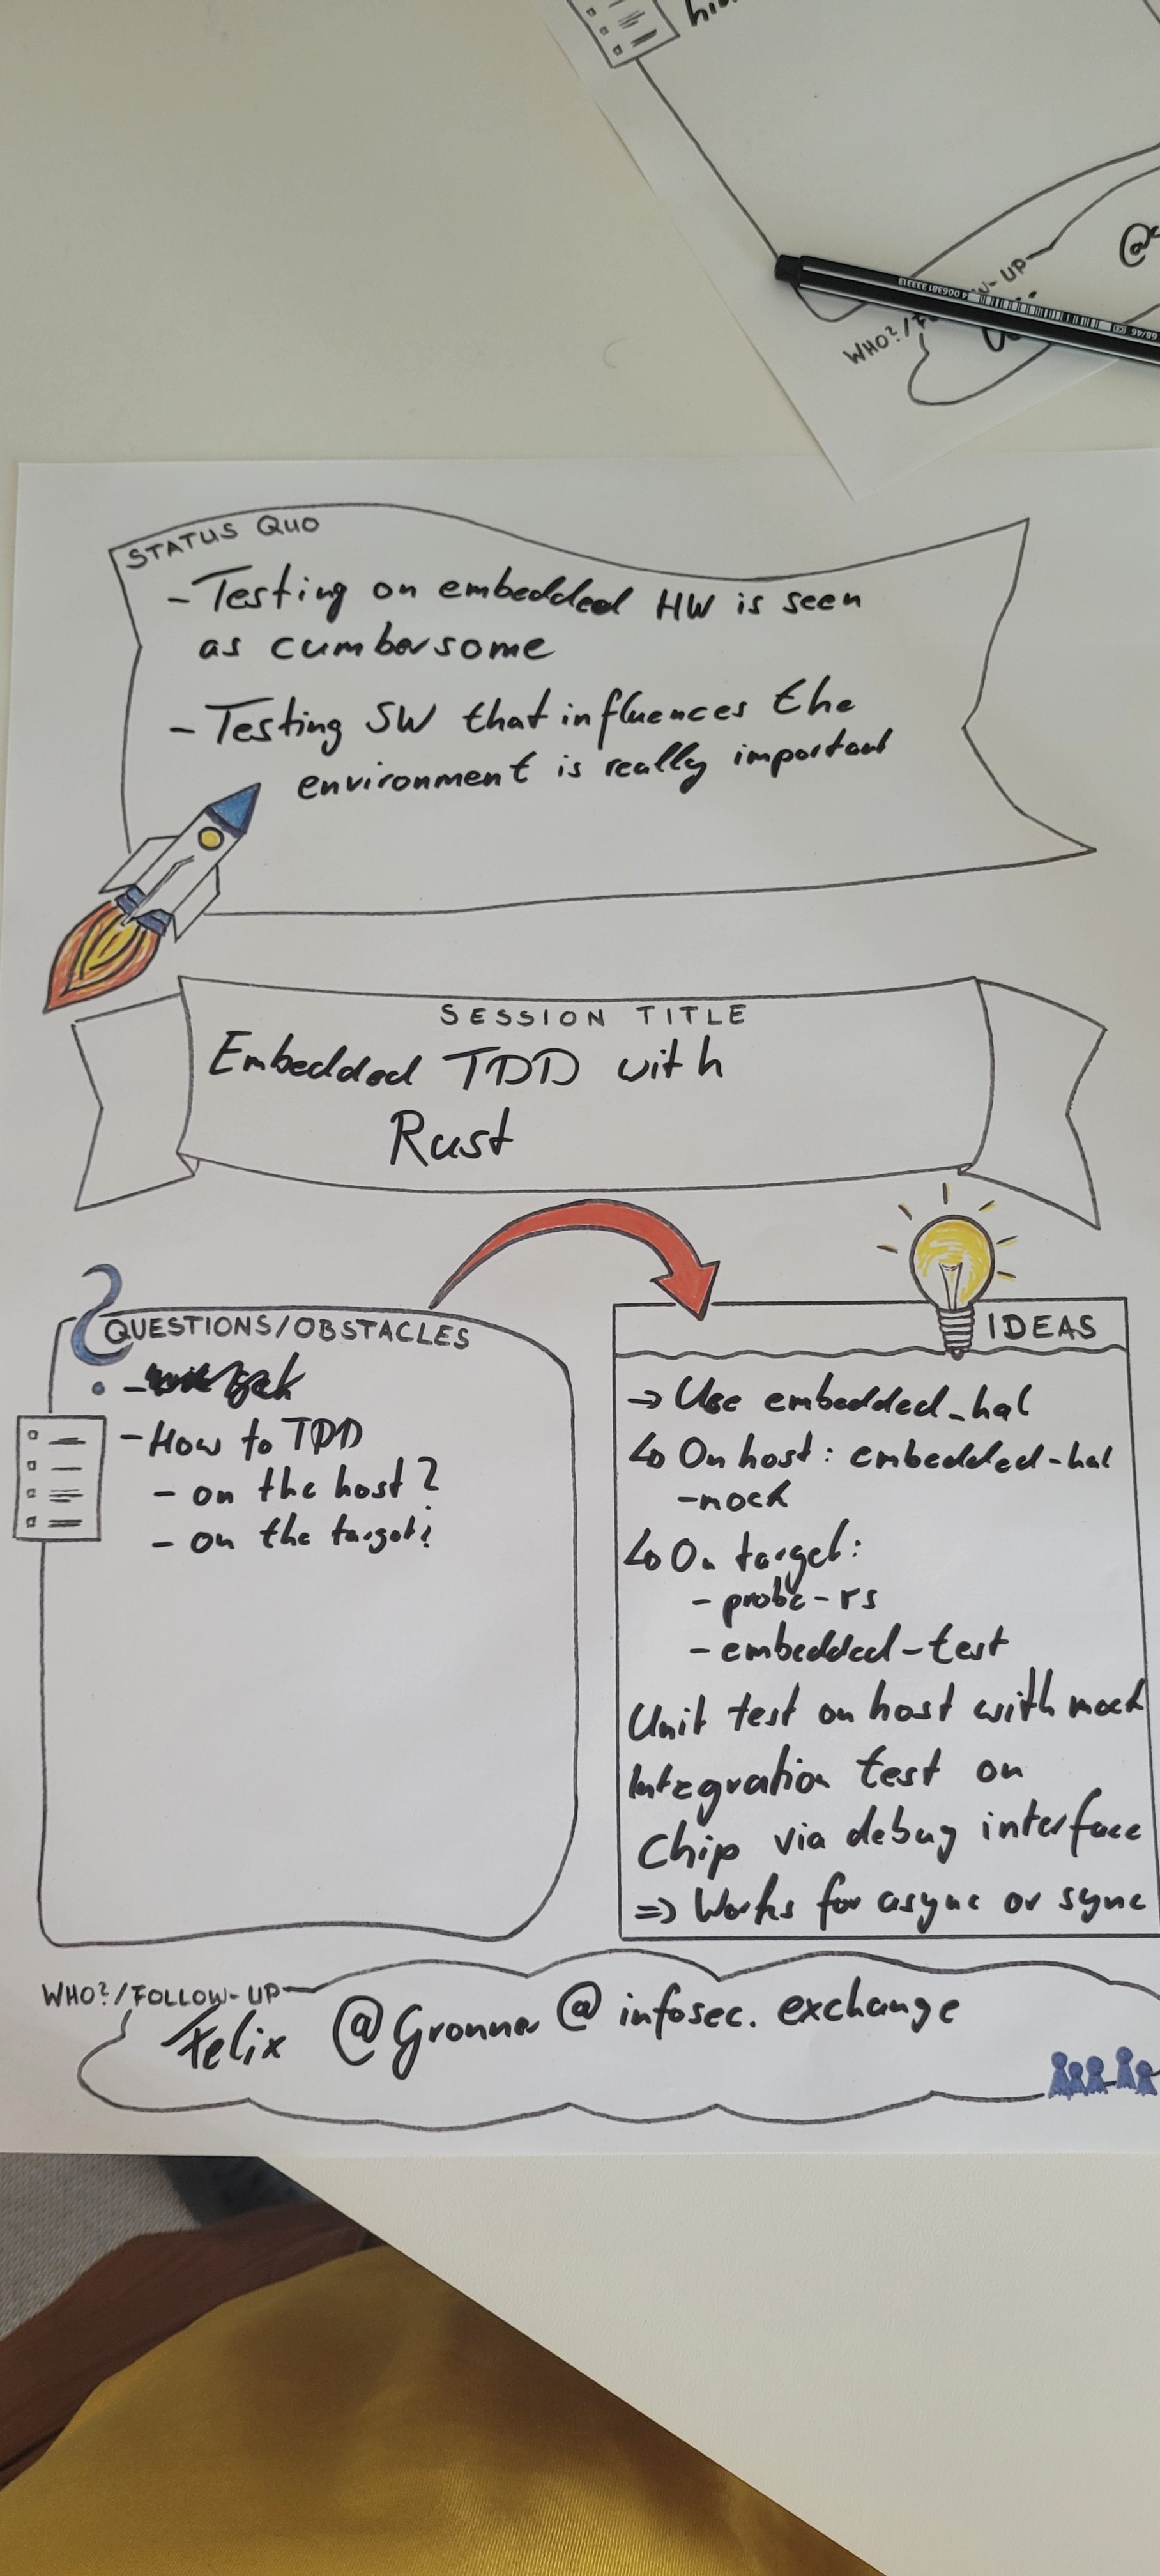 WHO?/
UP
4 006381 333313
STATUS QUO
- Testing on embedded HW is seen
as cumbersome
- Testing SW that influences the
environment is really important
SESSION TITLE
Embedded TDD with
Rust
QUESTIONS/OBSTACLES
- How to TDD
- on the host?
- on the target?
IDEAS
→ Use embedded_hal
↳ On host: embedded-hal
-mock
↳ On target:
- probe-rs
- embedded-test
Unit test on host with mock
Integration test on
Chip via debug interface
=> Works for async or sync
WHO?/FOLLOW-UP
Felix @Gronner@infosec.exchange